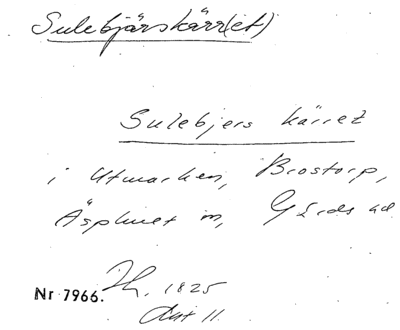 Sulebjärskärr(et)
Sulebjers kärret
i Utmarken, Brostorp,
Äsplunet m, Gärds hd
Nr 7966. Jh. 1825
Akt 11.